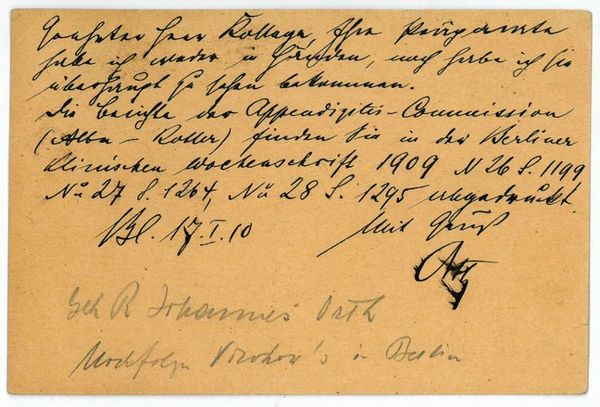 Geehrter Herr Kollege, Ihre Präparate
habe ich weder in Händen, noch habe ich sie
überhaupt zu sehen bekommen.
Die Berichte der Appendizitis-Commission
(Albu - Rotter) finden Sie in der Berliner
klinischen Wochenschrift 1909 N 26 S. 1199
No 27 S. 1264, No 28 S. 1295 abgedruckt.
Bl. 17.I.10 Mit Gruß
Orth
Geh R Johannes Orth
Nachfolger Virchow's in Berlin